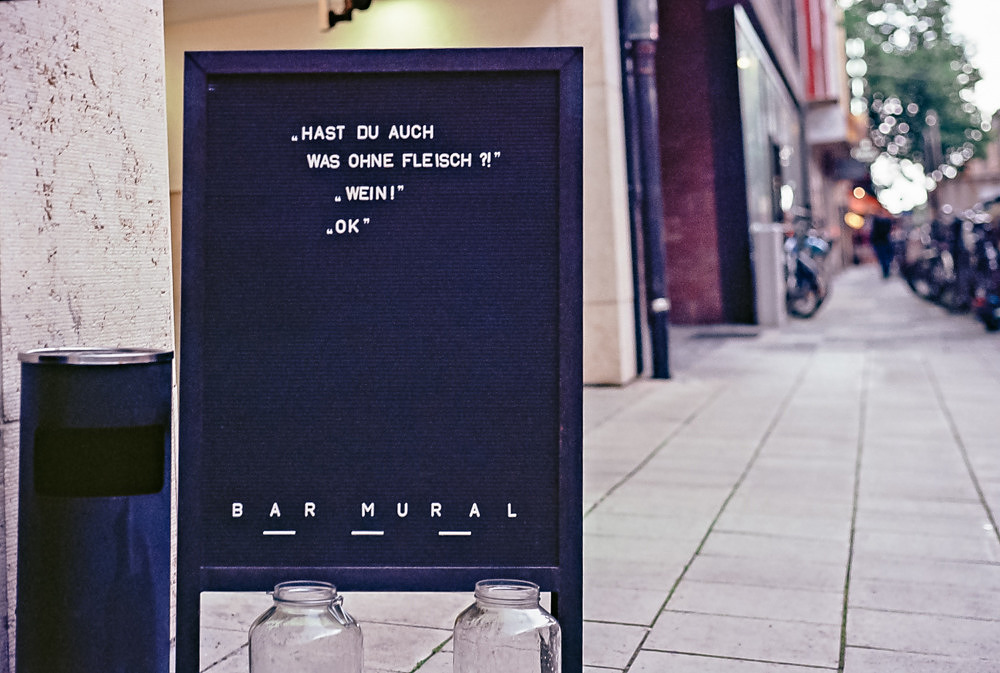 „HAST DU AUCH
WAS OHNE FLEISCH ?!”
„WEIN!”
„OK”
BAR MURAL